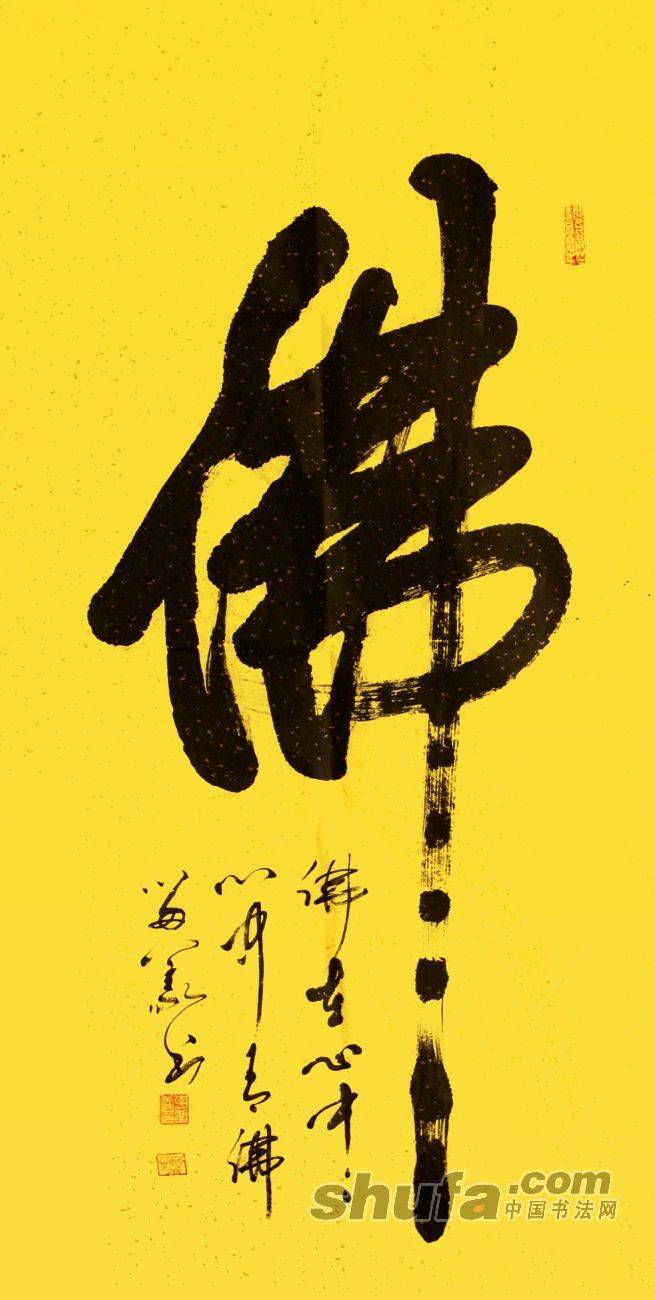 佛
佛在心中
心中有佛
shufa.com
中国书法网